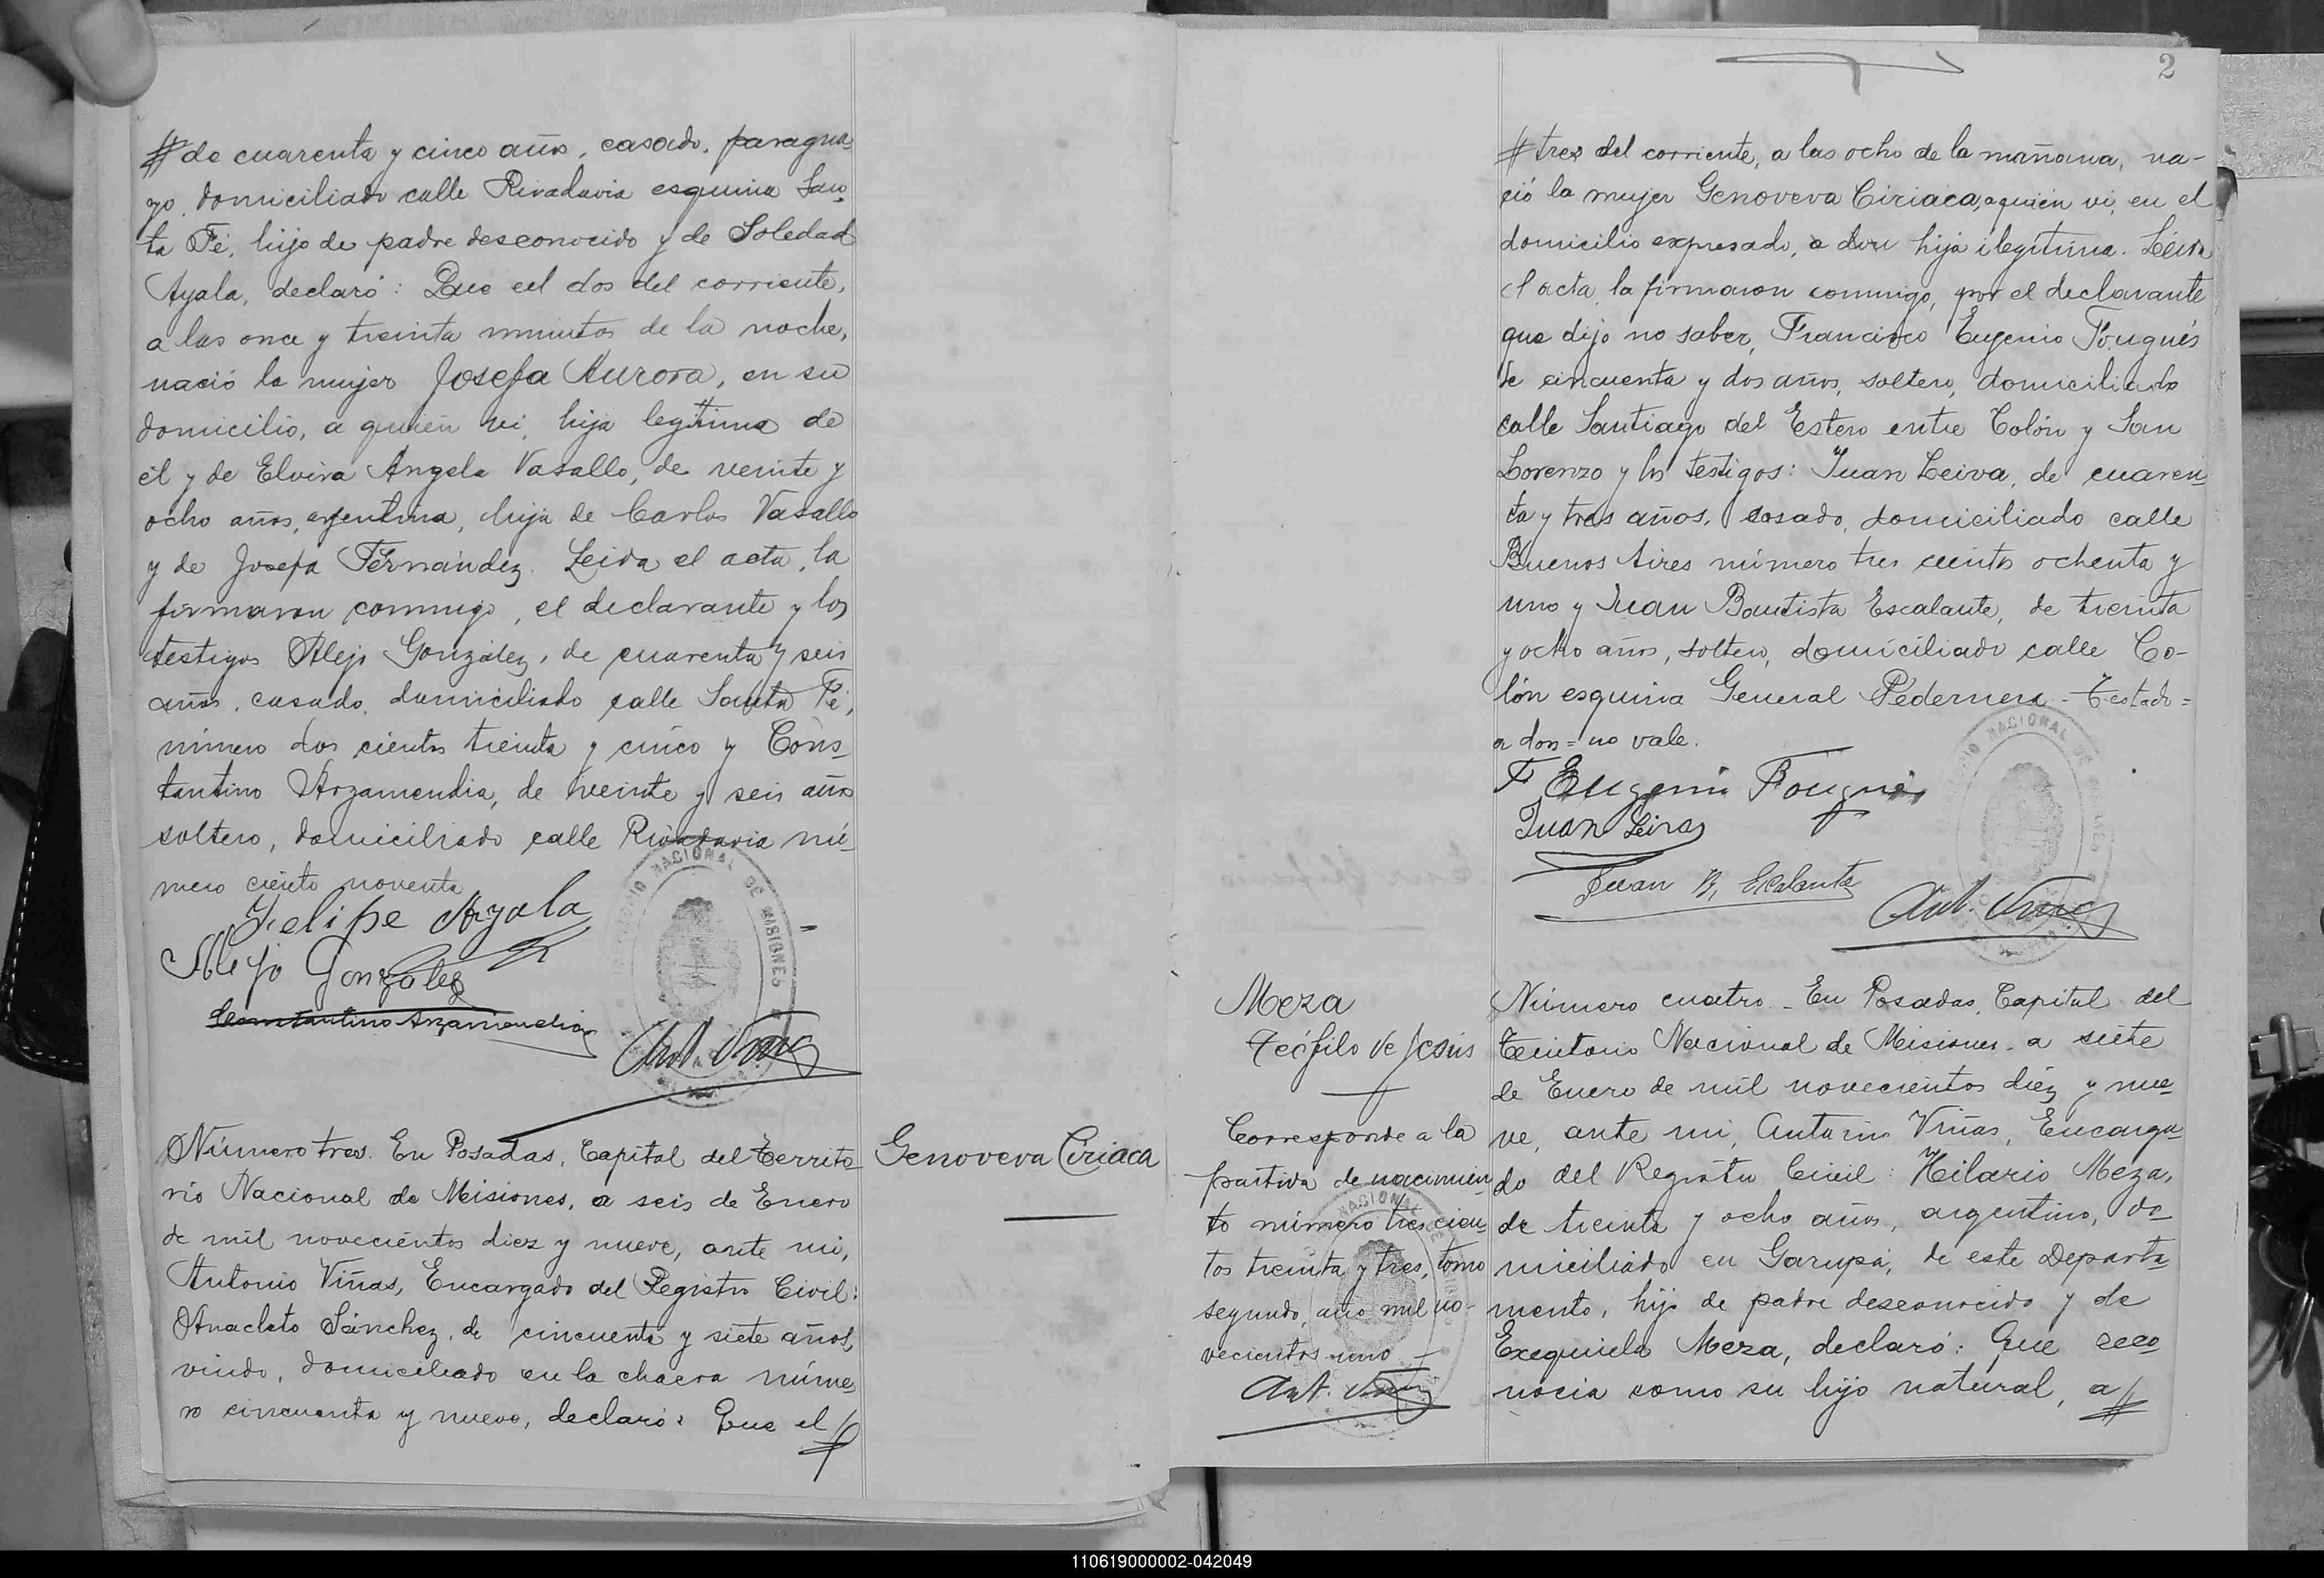 de cuarenta y cinco años, casado, paragua
yo, domiciliado calle Rivadavia esquina San
ta Fé, hijo de padre desconocido y de Soledad
Ayala, declaró: Que el dos del corriente,
a las once y treinta minutos de la noche,
nació la mujer Josefa Aurora, en su
domicilio, a quien vi, hija legítima de
él y de Elvira Angela Vasallo, de veinte y
ocho años, argentina, hija de Carlos Vasallo
y de Josefa Fernández. Leida el acta, la
firmaron conmigo, el declarante y los
testigos Alejo González, de cuarenta y seis
años, casado, domiciliado calle Santa Fé,
número dos cientos treinta y cinco y Cons-
tantino Arzamendia, de veinte y seis años
soltero, domiciliado calle Rivadavia nú-
mero ciento noventa
Felipe Ayala
Alejo Gonzalez
Constantino Arzamendia
Ant. Viñas
REGISTRO NACIONAL DE MISIONES
Número tres. En Posadas, Capital del Territo-
rio Nacional de Misiones, a seis de Enero
de mil novecientos diez y nueve, ante mi,
Antonio Viñas, Encargado del Registro Civil:
Anacleto Sánchez, de cincuenta y siete años,
viudo, domiciliado en la chacra núme-
ro cincuenta y nueve, declaró: Que el
Genoveva Ciriaca
2
tres del corriente, a las ocho de la mañana, na-
ció la mujer Genoveva Ciriaca, a quien vi, en el
domicilio expresado, a don hija ilegítima. Leida
el acta, la firmaron conmigo, por el declarante
que dijo no saber, Francisco Eugenio Fouqués
de cincuenta y dos años, soltero, domiciliado
calle Santiago del Estero entre Colón y San
Lorenzo y los testigos: Juan Leiva, de cuaren-
ta y tres años, casado, domiciliado calle
Buenos Aires número tres cientos ochenta y
uno y Juan Bautista Escalante, de treinta
y ocho años, soltero, domiciliado calle Co-
lón esquina General Pedernera - Testado =
a don = no vale.
F Eugenio Fouqués
Juan Leiva
Juan B. Escalante
Ant. Viñas
NACIONAL DE
Meza
Teófilo de Jesús
Corresponde a la
partida de nacimien-
to número tres cien-
tos treinta y tres, tomo
segundo, año mil no-
vecientos uno
Ant. Viñas
NACIONAL
Número cuatro - En Posadas, Capital del
Territorio Nacional de Misiones, a siete
de Enero de mil novecientos diéz y nue-
ve, ante mi, Antonio Viñas, Encarga-
do del Registro Civil: Hilario Meza,
de treinta y ocho años, argentino, do-
miciliado en Garupá, de este Departa-
mento, hijo de padre desconocido y de
Exequiela Meza, declaró: Que reco-
nocia como su hijo natural, a
110619000002-042049